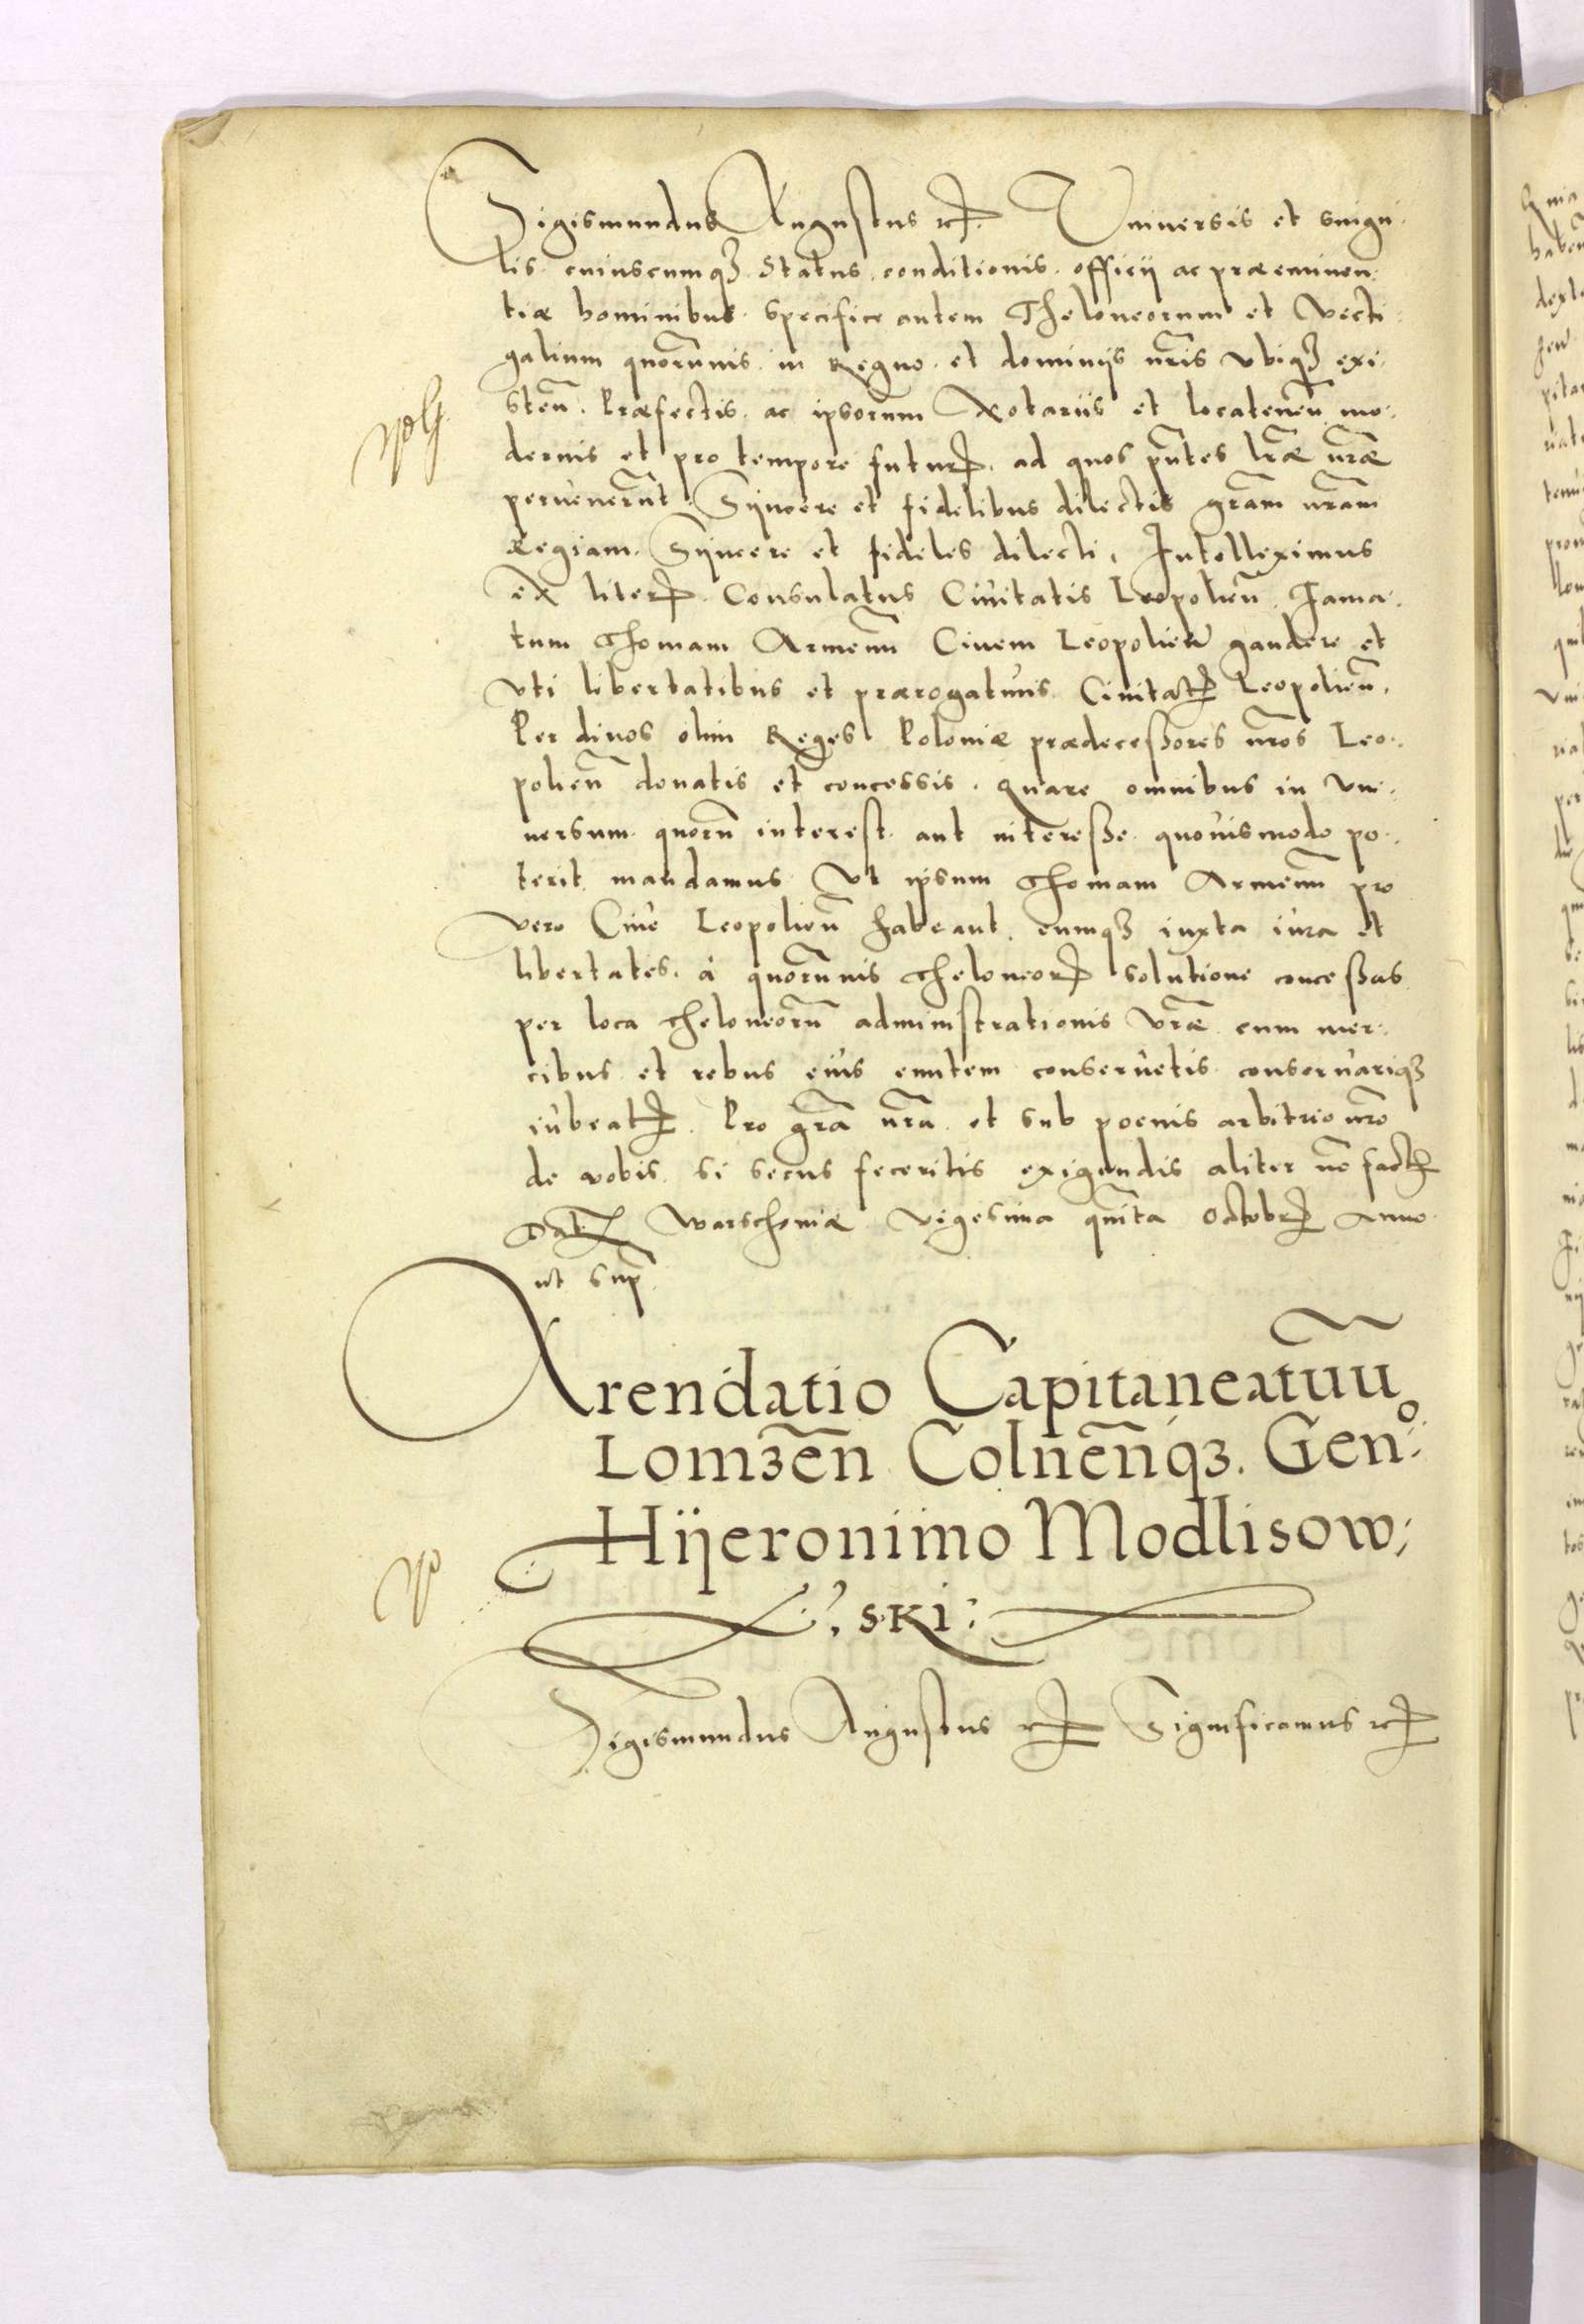 Sigismundus Augustus etc. Universis et singu-
lis cuiuscumq3 status, conditionis, officij ac præeminen-
tiæ hominibus specifice autem Theloneorum et Vecti-
galium quorumuis in Regno et dominijs nr̃is vbiq3 exi-
steñ. Præfectis ac ipsorum Notariis et locateneñ mo-
dernis et pro tempore futur. ad quos pñtes lr̃æ nr̃æ
peruenerint. Syncere et fidelibus dilectis gr̃am nr̃am
Regiam. Syncere et fideles dilecti, Intelleximus
ex liter. Consulatus Ciuitatis Leopolieñ. Fama-
tum Thomam Armenũ Ciuem Leopolień gaudere et
vti libertatibus et prærogatiuis Ciuitat. Leopolieñ.
Per diuos olim Reges Poloniæ prædecessores nr̃os Leo-
polieñ donatis et concessis. Quare omnibus in vni-
uersum quorũ interest aut interesse quouismodo po-
terit mandamus Vt ipsum Thomam Armenũ pro
vero Ciue Leopolieñ habeant, eumq3 iuxta iura et
libertates. à quorumuis Theloneor. solutione concessas
per loca Theloneorũ administrationis vr̃æ cum mer-
cibus et rebus eius euntem conseruetis conseruariq3
iubeat. Pro gr̃a nr̃a et sub poenis arbitrio nr̃o
de vobis si secus feceritis exigendis aliter nõ fact.
Dat. Warschoviæ vigesima quinta Octobr. Anno
ut sup.
Arendatio Capitaneatũũ
Lomzeñ Colneñq3. Gen.o
Hijeronimo Modlisow-
ski
Sigismundus Augustus etc. Significamus etc.